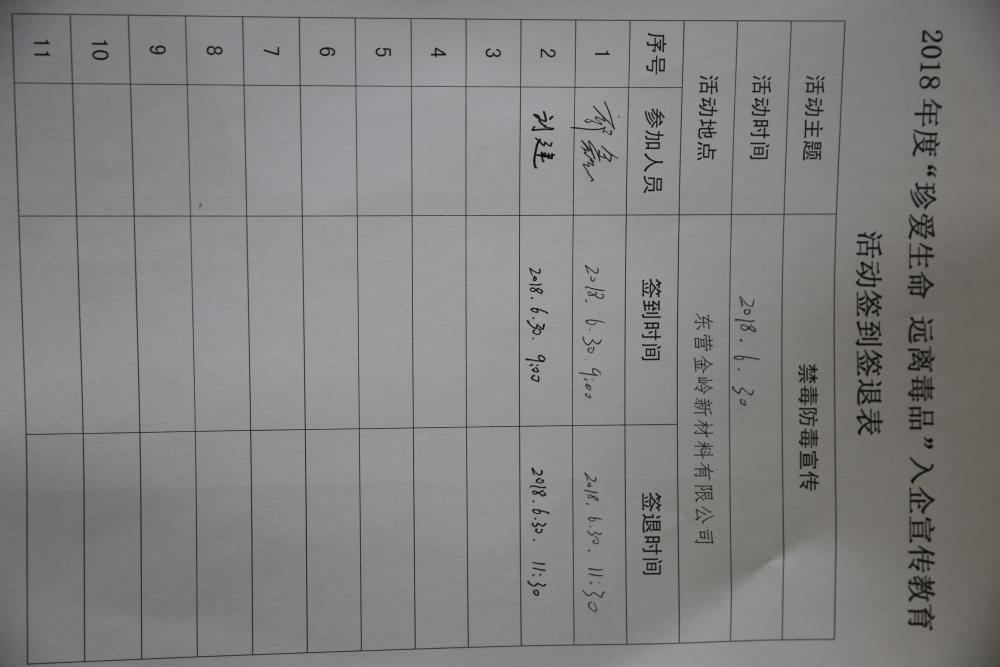 2018 年度“珍爱生命 远离毒品”入企宣传教育
活动签到签退表
活动主题 禁毒防毒宣传
活动时间 2018.6.30
活动地点 东营金岭新材料有限公司
序号 参加人员 签到时间 签退时间
1 2018.6.30.9:00 2018.6.30.11:30
2 刘建 2018.6.30.9:00 2018.6.30.11:30
3
4
5
6
7
8
9
10
11